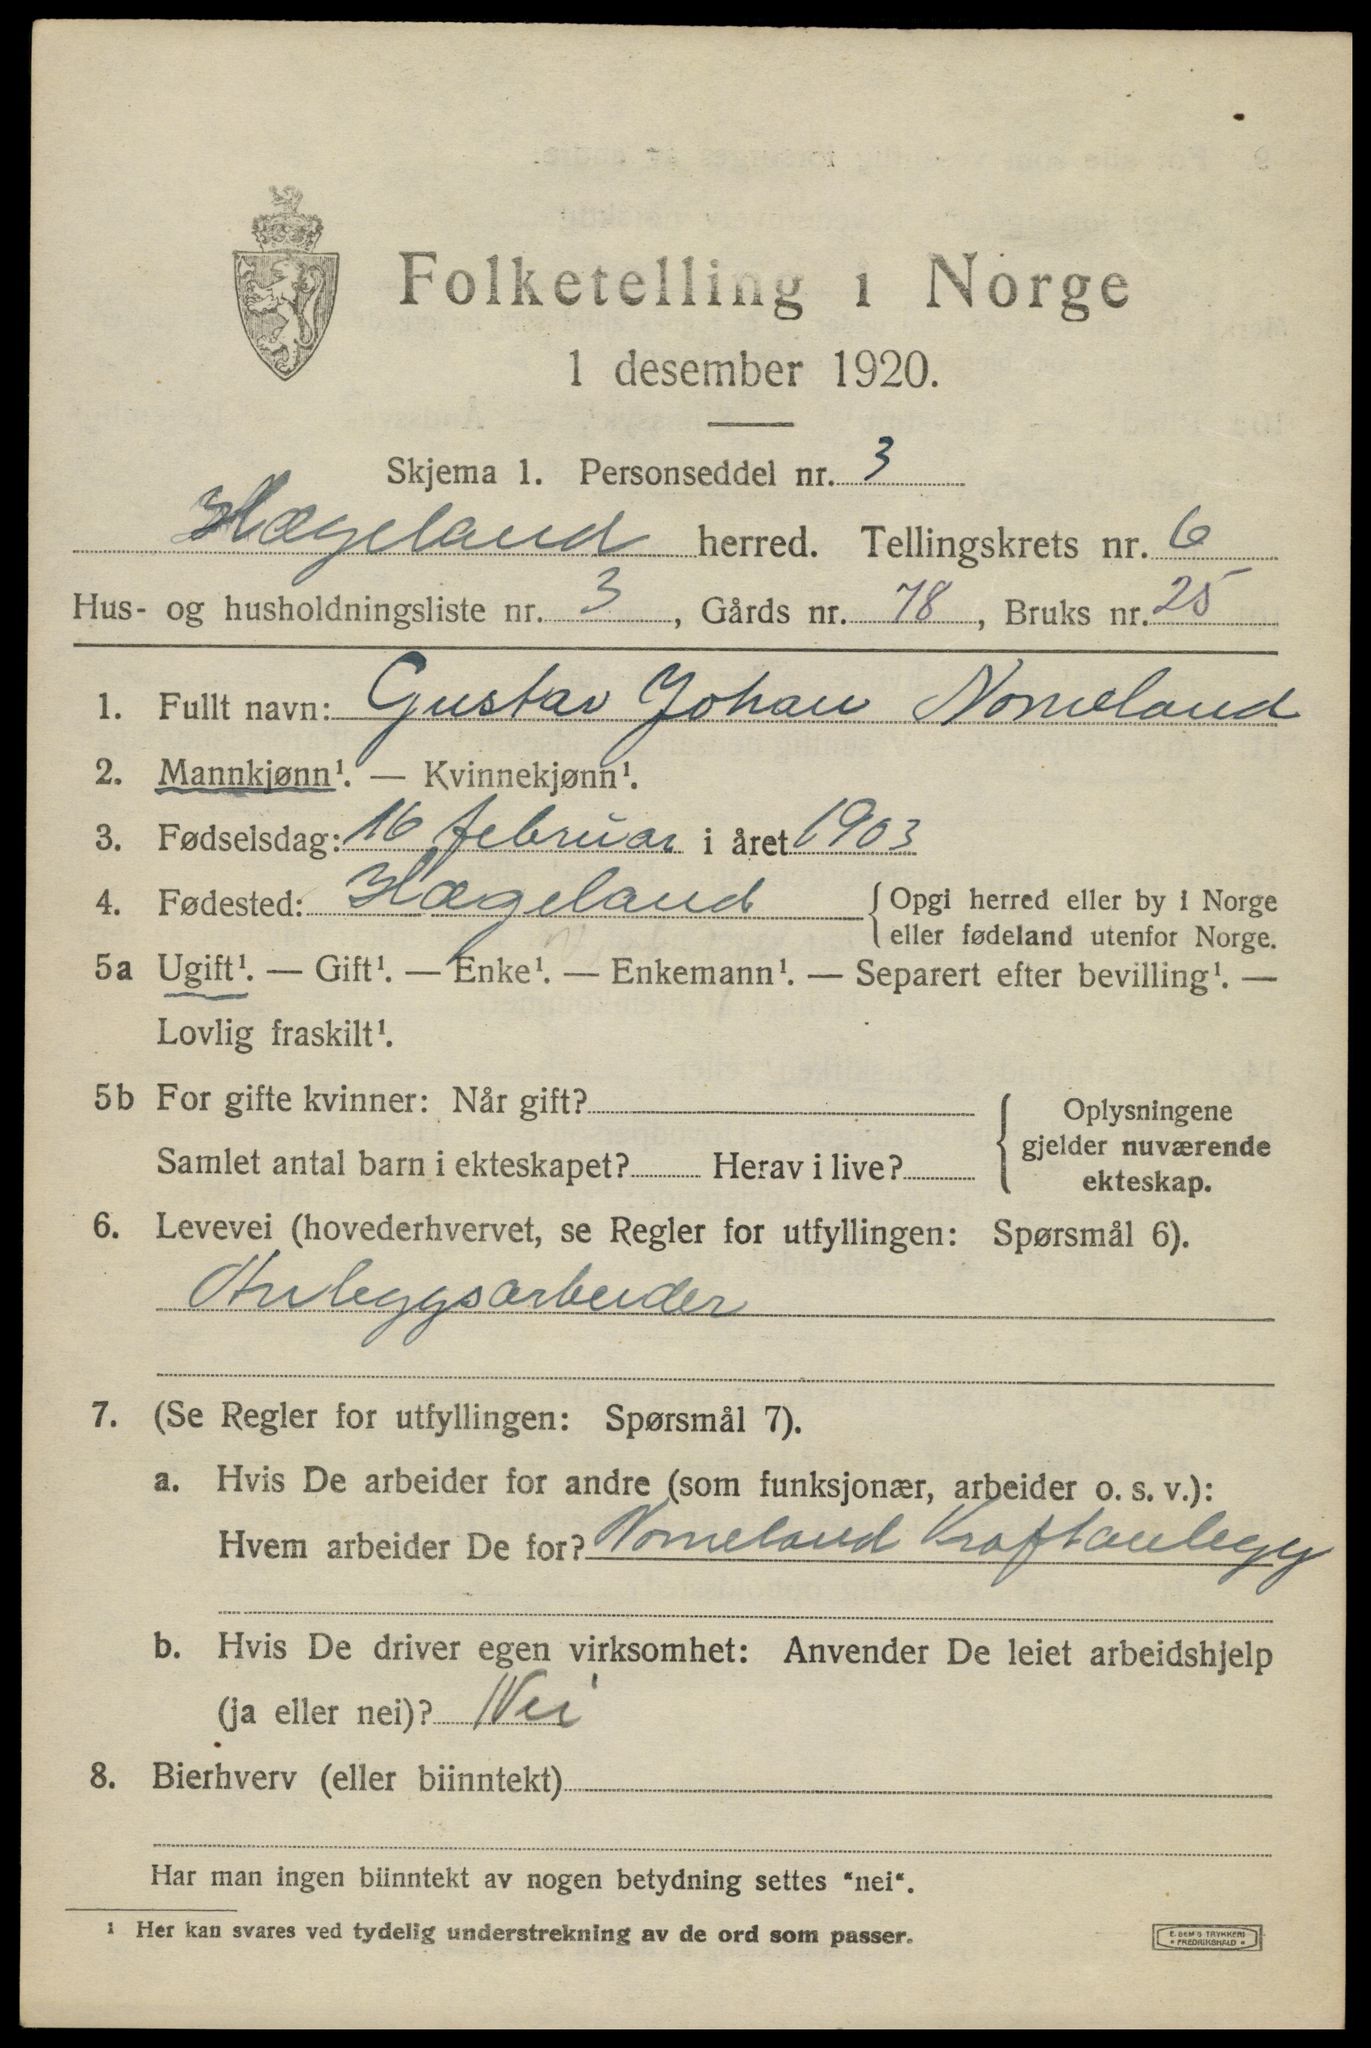 Folketelling i Norge
1 desember 1920.
Skjema 1. Personseddel nr. 3
Hægeland herred. Tellingskrets nr. 6
Hus- og husholdningsliste nr. 3, Gårds nr. 78, Bruks nr. 25
1. Fullt navn: Gustav Johan Nomeland
2. Mannkjønn¹. — Kvinnekjønn¹.
3. Fødselsdag: 16 februar i året 1903
4. Fødested: Hægeland { Opgi herred eller by i Norge
eller fødeland utenfor Norge.
5a Ugift¹. — Gift¹. — Enke¹. — Enkemann¹. — Separert efter bevilling¹. —
Lovlig fraskilt¹.
5b For gifte kvinner: Når gift?
Samlet antal barn i ekteskapet? Herav i live?
{ Oplysningene
gjelder nuværende
ekteskap.
6. Levevei (hovederhvervet, se Regler for utfyllingen: Spørsmål 6).
Anleggsarbeider
7. (Se Regler for utfyllingen: Spørsmål 7).
a. Hvis De arbeider for andre (som funksjonær, arbeider o. s. v.):
Hvem arbeider De for? Nomeland Kraftanlegg
b. Hvis De driver egen virksomhet: Anvender De leiet arbeidshjelp
(ja eller nei)? Nei
8. Bierhverv (eller biinntekt)
Har man ingen biinntekt av nogen betydning settes "nei".
¹ Her kan svares ved tydelig understrekning av de ord som passer.
E. SEM'S TRYKKERI
• FREDRIKSHALD •